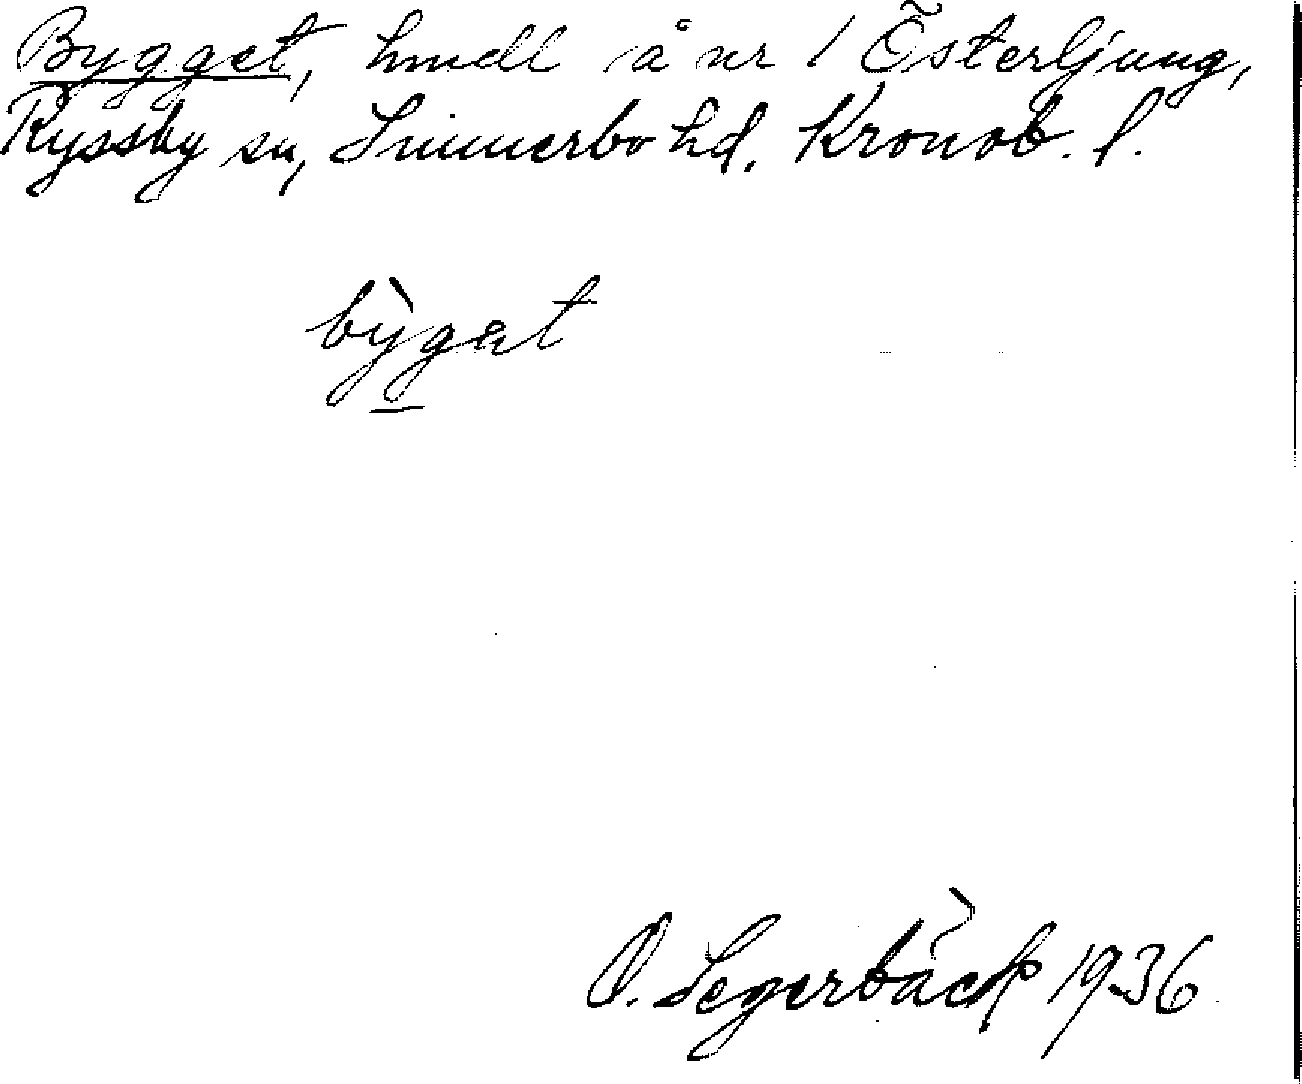 Bygget, hmdl å nr 1 Österljung,
Ryssby sn, Sunnerbo hd. Kronob. l.
bỳgət
O. Segerbäck 1936